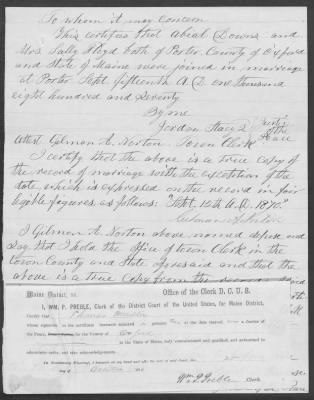 To whom it may concern
This certifies that Abial Downs and
Mrs. Sally Floyd both of Porter, County of Oxford
and State of Maine were joined in marriage
at Porter Sept. fifteenth A.D. one thousand
eight hundred and seventy
By me
Jordan Stacy Justice of the Peace
Attest Gilman A. Norton Town Clerk
I certify that the above is a true copy of
the record of marriage with the exception of the
date which is expressed on the record in fair
legible figures as follows: "Sept. 15th A.D. 1870."
Gilman A. Norton
I Gilman A. Norton above named depose and
say that I hold the office of Town Clerk in the
Town County and State aforesaid and that the
above is a true copy from the record
Maine District, ss. Office of the Clerk D. C. U. S.
I, WM. P. PREBLE, Clerk of the District Court of the United States, for Maine District,
Certify that
whose signature to the certificate hereunto annexed is genuine was at the date thereof a Justice of the
Peace, for the County of Oxford
in the State of Maine, duly commissioned and qualified, and authorized to
administer oaths, and take acknowledgments.
day of October
Wm. P. Preble Clerk.